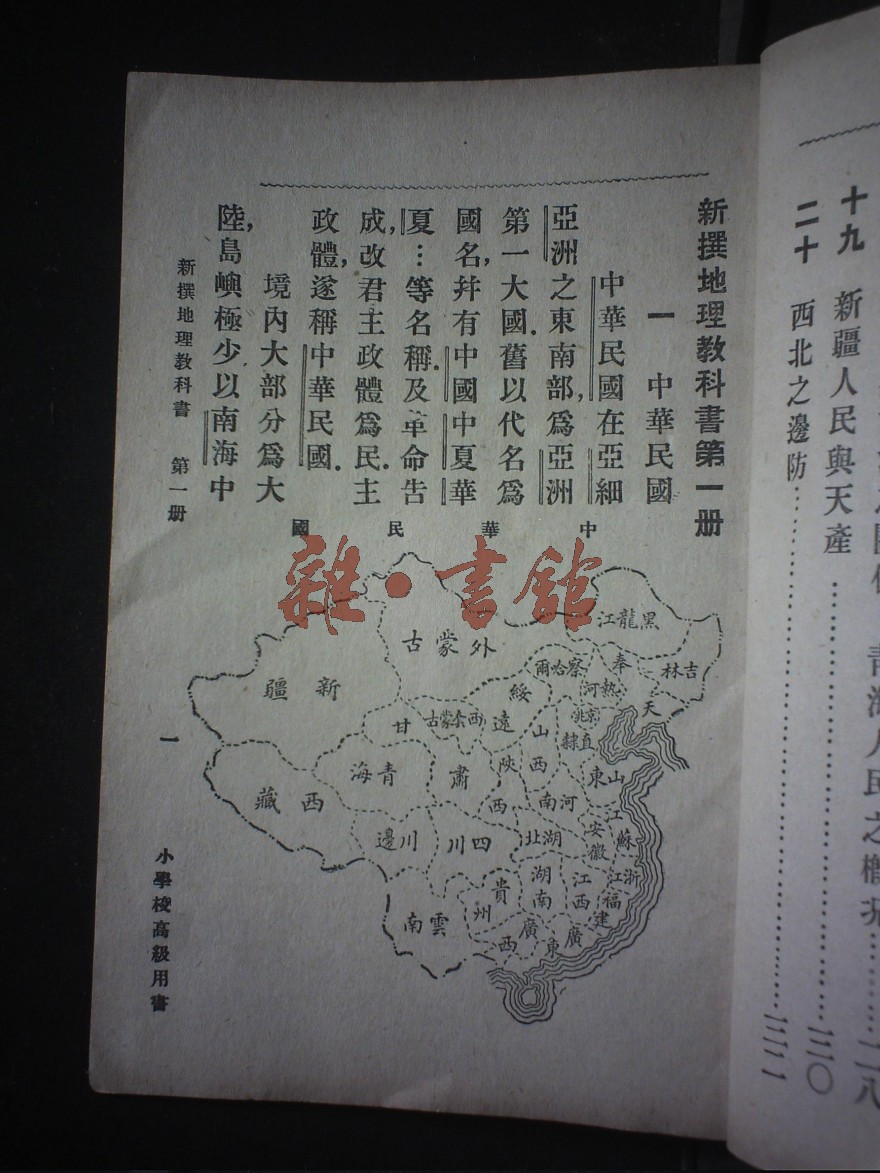 十九　新疆人民與天產……一二〇
二十　西北之邊防……一二二
新撰地理教科書第一册
一　中華民國
中華民國在亞細
亞洲之東南部，爲亞洲
第一大國．舊以代名爲
國名，幷有中國中夏華
夏…等名稱．及革命告
成，改君主政體爲民主
政體，遂稱中華民國．
境內大部分爲大
陸，島嶼極少以南海中
新撰地理教科書　第一册
一
小學校高級用書
國民華中
雜·書館
江龍黑
吉林
奉
天
外蒙古
爾哈察
河熱
新疆
綏
遠
古蒙套西
甘
肅
山
西
兆京
隸直
陝
西
東山
青海
西藏
南河
江
蘇
安
徽
邊川
川四
北湖
湖
南
江
西
江浙
福
建
貴
州
南雲
廣
西
廣
東